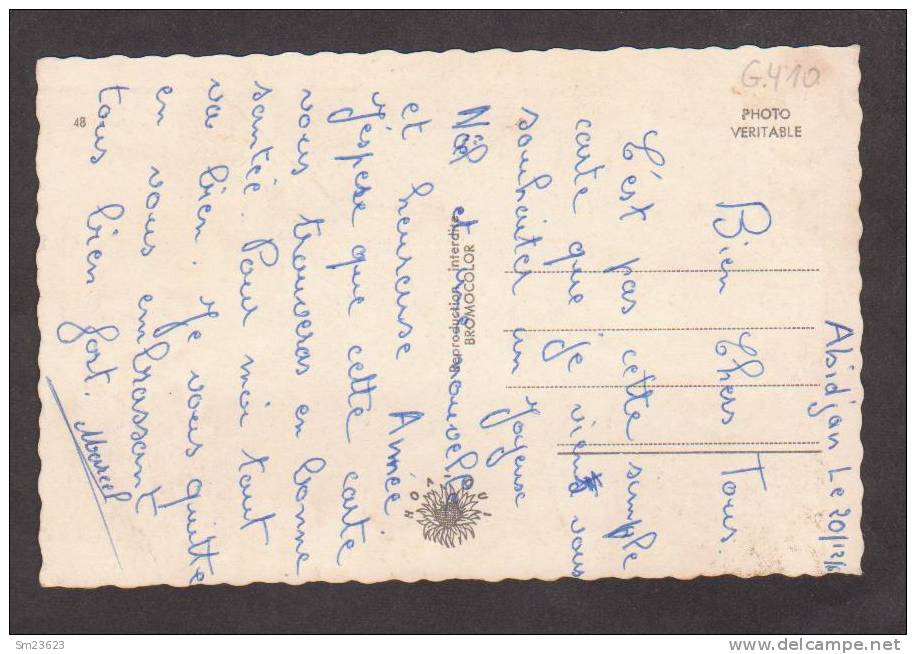 Abidjan Le 20/12/
Bien Chers Tous.
C'est pas cette simple
carte que je viens vous
souhaiter un Joyeuse
Nöel et nouvelle
et heureuse Année
j'espese que cette carte
vous trouveras en bonne
santée. Pour moi tout
va bien. Je vous quitte
en vous embrassant
tous bien fort.
Marcel
G.410
PHOTO
VERITABLE
48
Reproduction interdite
BROMOCOLOR
HOA QUI
Sm23623
delcampe.net